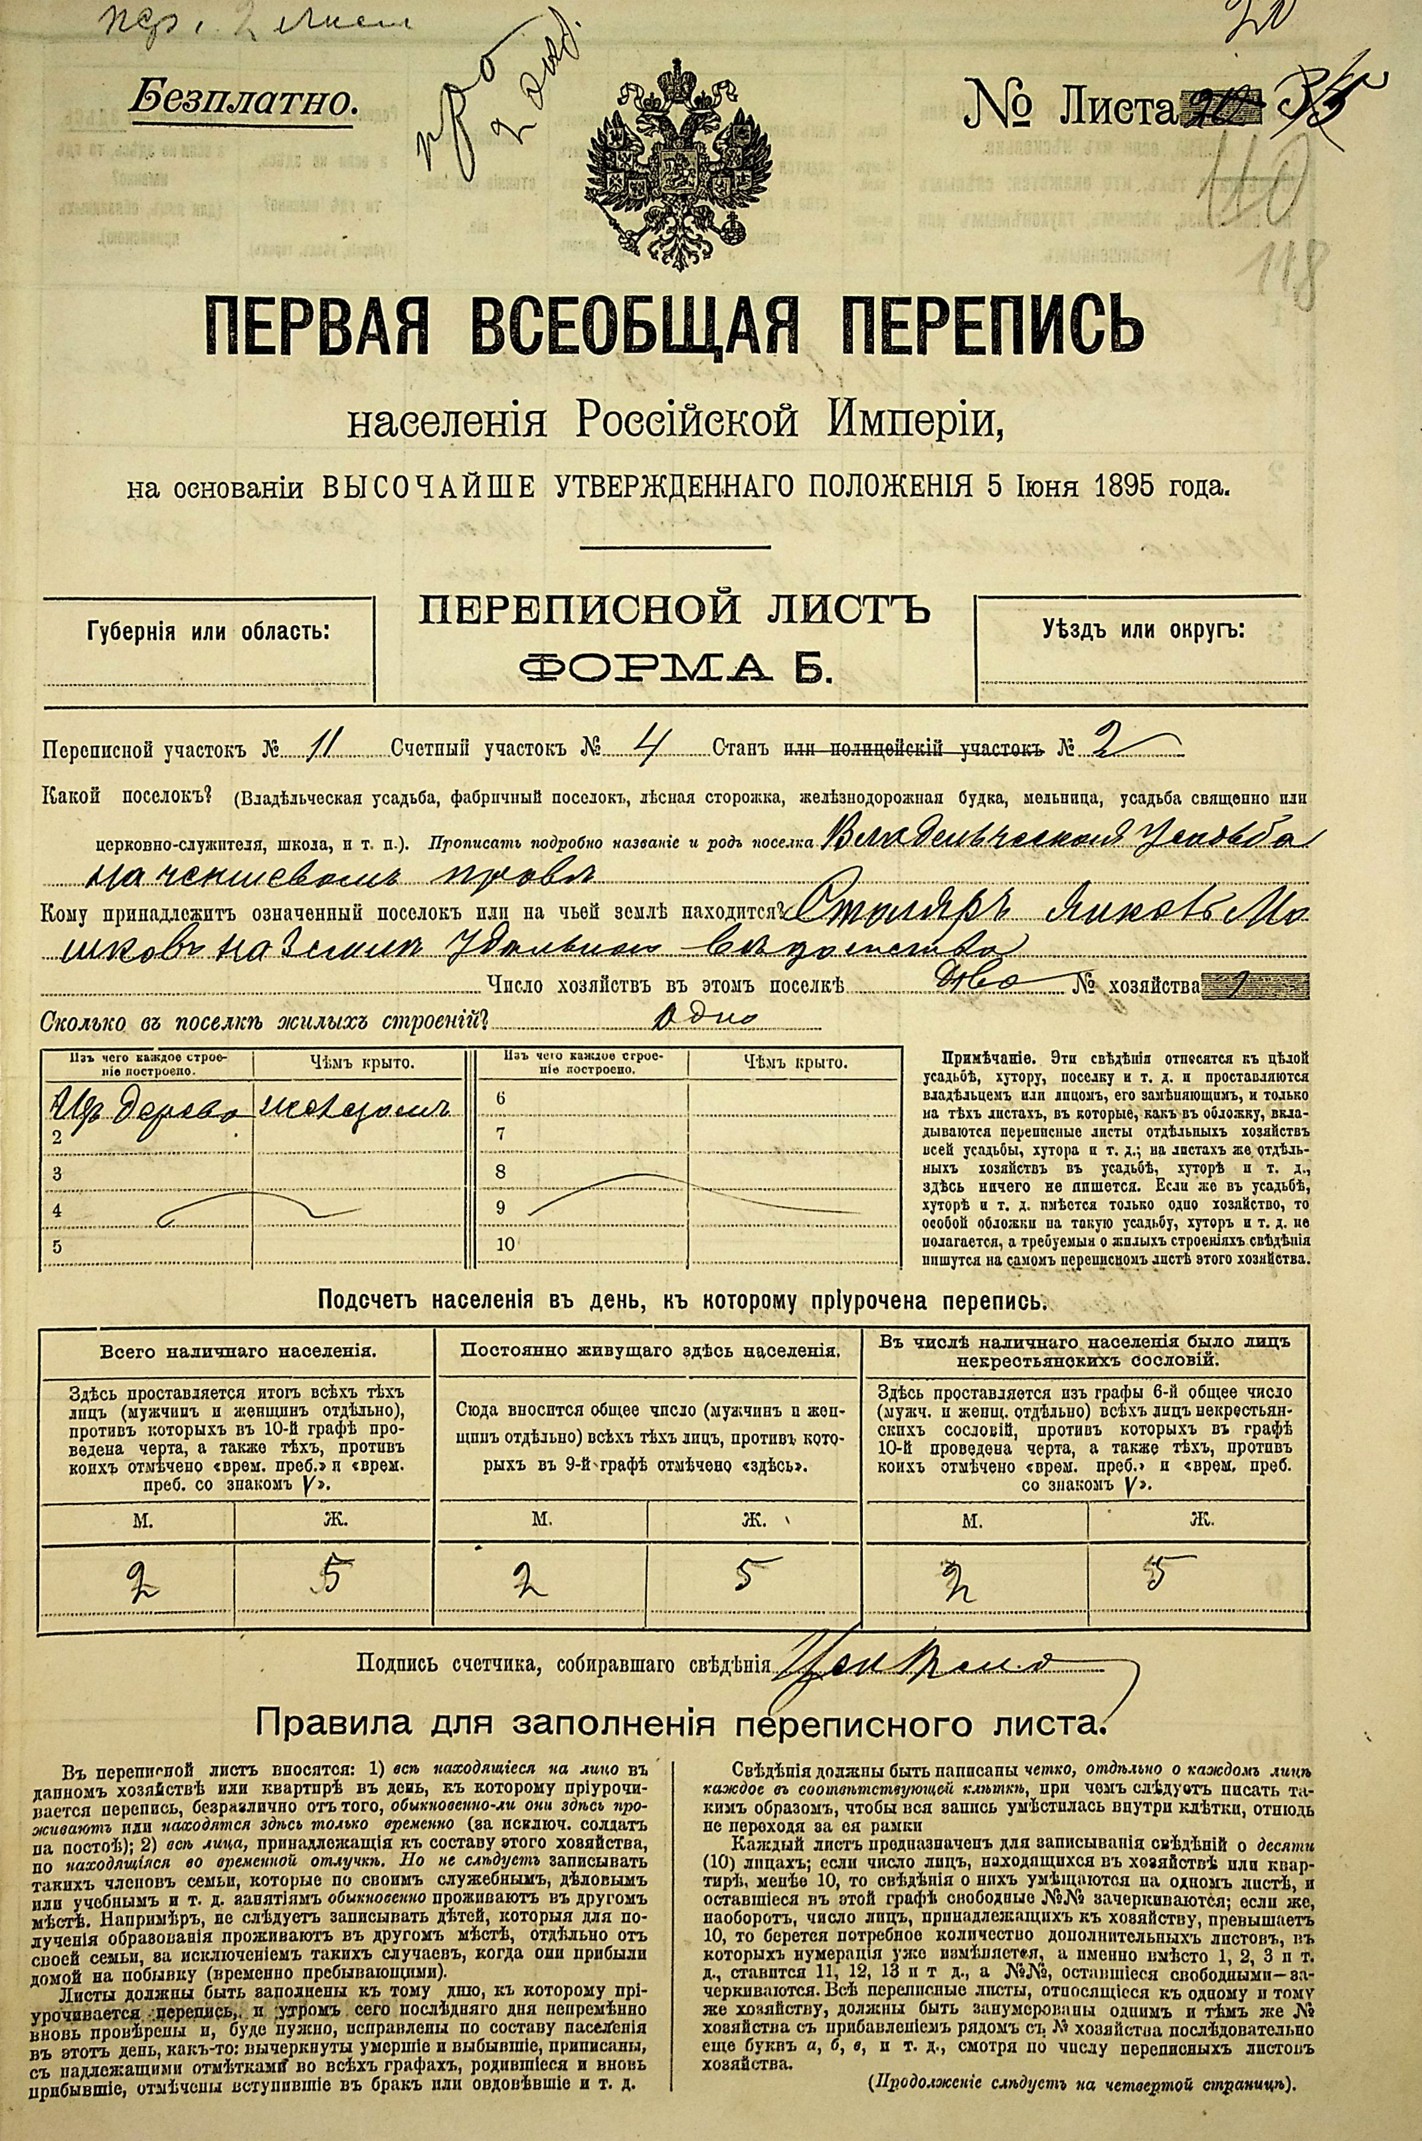 2 листа
20
Безплатно.
№ Листа 20 35
110
118
ПЕРВАЯ ВСЕОБЩАЯ ПЕРЕПИСЬ
населенія Россійской Имперіи,
на основаніи ВЫСОЧАЙШЕ УТВЕРЖДЕННАГО ПОЛОЖЕНІЯ 5 Іюня 1895 года.
ПЕРЕПИСНОЙ ЛИСТЪ
ФОРМА Б.
Губернія или область:
Уѣздъ или округъ:
Переписной участокъ № 11 Счетный участокъ № 4 Станъ или полицейскій участокъ № 2
Какой поселокъ? (Владѣльческая усадьба, фабричный поселокъ, лѣсная сторожка, желѣзнодорожная будка, мельница, усадьба священно или
церковно-служителя, школа, и т. п.). Прописать подробно названіе и родъ поселка Владельческая Усадьба
на чиншевомъ праве
Кому принадлежитъ означенный поселокъ или на чьей землѣ находится? Столяръ Яковъ Мо
шковъ на Земли Удельного Ведомства
Число хозяйствъ въ этомъ поселкѣ два № хозяйства 1
Сколько въ поселкѣ жилыхъ строеній? одно
Изъ чего каждое строе-
ніе построено.
Чѣмъ крыто.
Изъ чего каждое строе-
ніе построено.
Чѣмъ крыто.
1 Изъ дерева железомъ
2
3
4
5
6
7
8
9
10
Примѣчаніе. Эти свѣдѣнія относятся къ цѣлой
усадьбѣ, хутору, поселку и т. д. и проставляются
владѣльцемъ или лицомъ, его замѣняющимъ, и только
на тѣхъ листахъ, въ которые, какъ въ обложку, вкла-
дываются переписные листы отдѣльныхъ хозяйствъ
всей усадьбы, хутора и т. д.; на листахъ же отдѣль-
ныхъ хозяйствъ въ усадьбѣ, хуторѣ и т. д.,
здѣсь ничего не пишется. Если же въ усадьбѣ,
хуторѣ и т. д. имѣется только одно хозяйство, то
особой обложки на такую усадьбу, хуторъ и т. д. не
полагается, а требуемыя о жилыхъ строеніяхъ свѣдѣнія
пишутся на самомъ переписномъ листѣ этого хозяйства.
Подсчетъ населенія въ день, къ которому пріурочена перепись.
Всего наличнаго населенія.
Здѣсь проставляется итогъ всѣхъ тѣхъ
лицъ (мужчинъ и женщинъ отдѣльно),
противъ которыхъ въ 10-й графѣ про-
ведена черта, а также тѣхъ, противъ
коихъ отмѣчено «врем. преб.» и «врем.
преб. со знакомъ V».
Постоянно живущаго здѣсь населенія.
Сюда вносится общее число (мужчинъ и жен-
щинъ отдѣльно) всѣхъ тѣхъ лицъ, противъ кото-
рыхъ въ 9-й графѣ отмѣчено «здѣсь».
Въ числѣ наличнаго населенія было лицъ
некрестьянскихъ сословій.
Здѣсь проставляется изъ графы 6-й общее число
(мужч. и женщ. отдѣльно) всѣхъ лицъ некрестьян-
скихъ сословій, противъ которыхъ въ графѣ
10-й проведена черта, а также тѣхъ, противъ
коихъ отмѣчено «врем. преб.» и «врем. преб.
со знакомъ V».
М. Ж. М. Ж. М. Ж.
2 5 2 5 2 5
Подпись счетчика, собиравшаго свѣдѣнія
Правила для заполненія переписного листа.
Въ переписной листъ вносятся: 1) всѣ находящіеся на лицо въ
данномъ хозяйствѣ или квартирѣ въ день, къ которому пріурочи-
вается перепись, безразлично отъ того, обыкновенно-ли они здѣсь про-
живаютъ или находятся здѣсь только временно (за исключ. солдатъ
на постоѣ); 2) всѣ лица, принадлежащія къ составу этого хозяйства,
но находящіяся во временной отлучкѣ. Но не слѣдуетъ записывать
такихъ членовъ семьи, которые по своимъ служебнымъ, дѣловымъ
или учебнымъ и т. д. занятіямъ обыкновенно проживаютъ въ другомъ
мѣстѣ. Напримѣръ, не слѣдуетъ записывать дѣтей, которыя для по-
лученія образованія проживаютъ въ другомъ мѣстѣ, отдѣльно отъ
своей семьи, за исключеніемъ такихъ случаевъ, когда они прибыли
домой на побывку (временно пребывающими).
Листы должны быть заполнены къ тому дню, къ которому прі-
урочивается перепись, и утромъ сего послѣдняго дня непремѣнно
вновь провѣрены и, буде нужно, исправлены по составу населенія
въ этотъ день, какъ-то: вычеркнуты умершіе и выбывшіе, приписаны,
съ надлежащими отмѣтками во всѣхъ графахъ, родившіеся и вновь
прибывшіе, отмѣчены вступившіе въ бракъ или овдовѣвшіе и т. д.
Свѣдѣнія должны быть написаны четко, отдѣльно о каждомъ лицѣ
каждое въ соотвѣтствующей клѣткѣ, при чемъ слѣдуетъ писать та-
кимъ образомъ, чтобы вся запись умѣстилась внутри клѣтки, отнюдь
не переходя за ея рамки
Каждый листъ предназначенъ для записыванія свѣдѣній о десяти
(10) лицахъ; если число лицъ, находящихся въ хозяйствѣ или квар-
тирѣ, менѣе 10, то свѣдѣнія о нихъ умѣщаются на одномъ листѣ, и
оставшіеся въ этой графѣ свободные №№ зачеркиваются; если же,
наоборотъ, число лицъ, принадлежащихъ къ хозяйству, превышаетъ
10, то берется потребное количество дополнительныхъ листовъ, въ
которыхъ нумерація уже измѣняется, а именно вмѣсто 1, 2, 3 и т.
д., ставится 11, 12, 13 и т д., а №№, оставшіеся свободными—за-
черкиваются. Всѣ переписные листы, относящіеся къ одному и тому
же хозяйству, должны быть занумерованы однимъ и тѣмъ же №
хозяйства съ прибавленіемъ рядомъ съ № хозяйства послѣдовательно
еще буквъ а, б, в, и т. д., смотря по числу переписныхъ листовъ
хозяйства.
(Продолженіе слѣдуетъ на четвертой страницѣ).